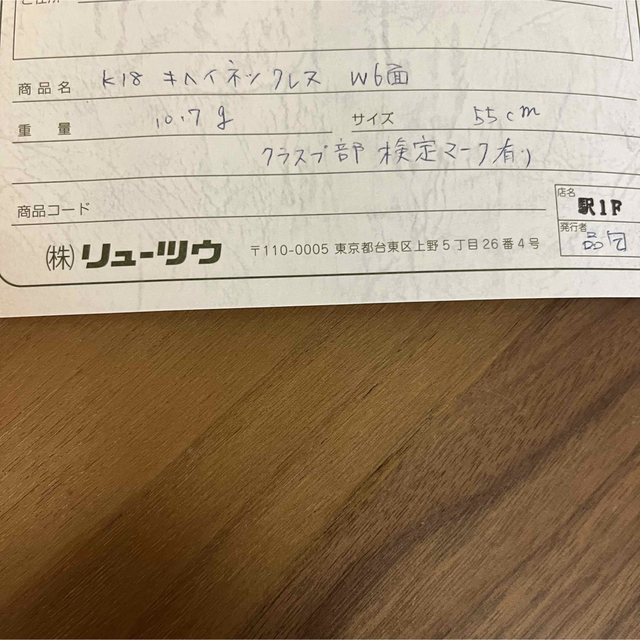 ご住所
商品名 K18 キヘイネックレス W6面
重量 10.7g サイズ 55cm
クラスプ部 検定マーク有り
商品コード
店名 駅1F
発行者
(株)リューツウ 〒110-0005 東京都台東区上野5丁目26番4号